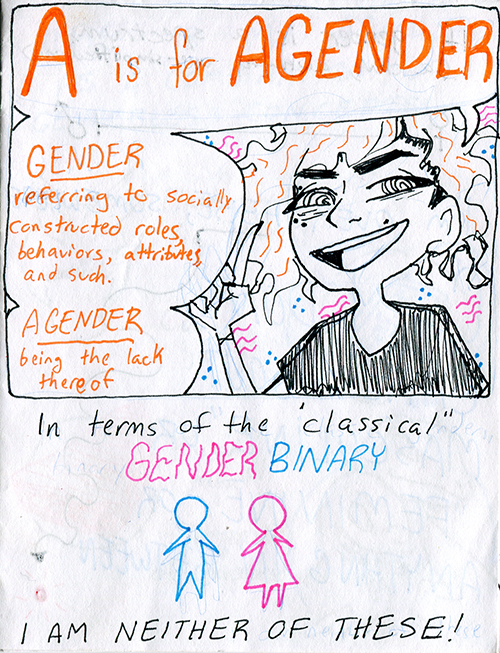 A is for AGENDER
GENDER
referring to socially
constructed roles,
behaviors, attributes,
and such.
AGENDER
being the lack
thereof
In terms of the "classical"
GENDER BINARY
I AM NEITHER OF THESE!